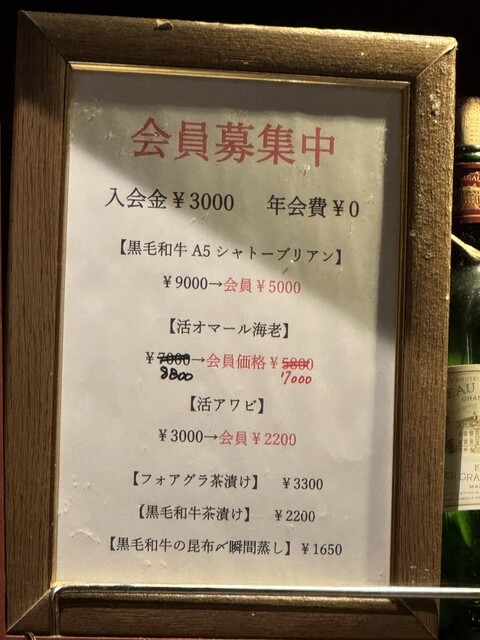 会員募集中
入会金￥3000　年会費￥0
【黒毛和牛 A5 シャトーブリアン】
￥9000→会員￥5000
【活オマール海老】
￥7000→会員価格￥5800
8800 7000
【活アワビ】
￥3000→会員￥2200
【フォアグラ茶漬け】　￥3300
【黒毛和牛茶漬け】　￥2200
【黒毛和牛の昆布〆瞬間蒸し】￥1650